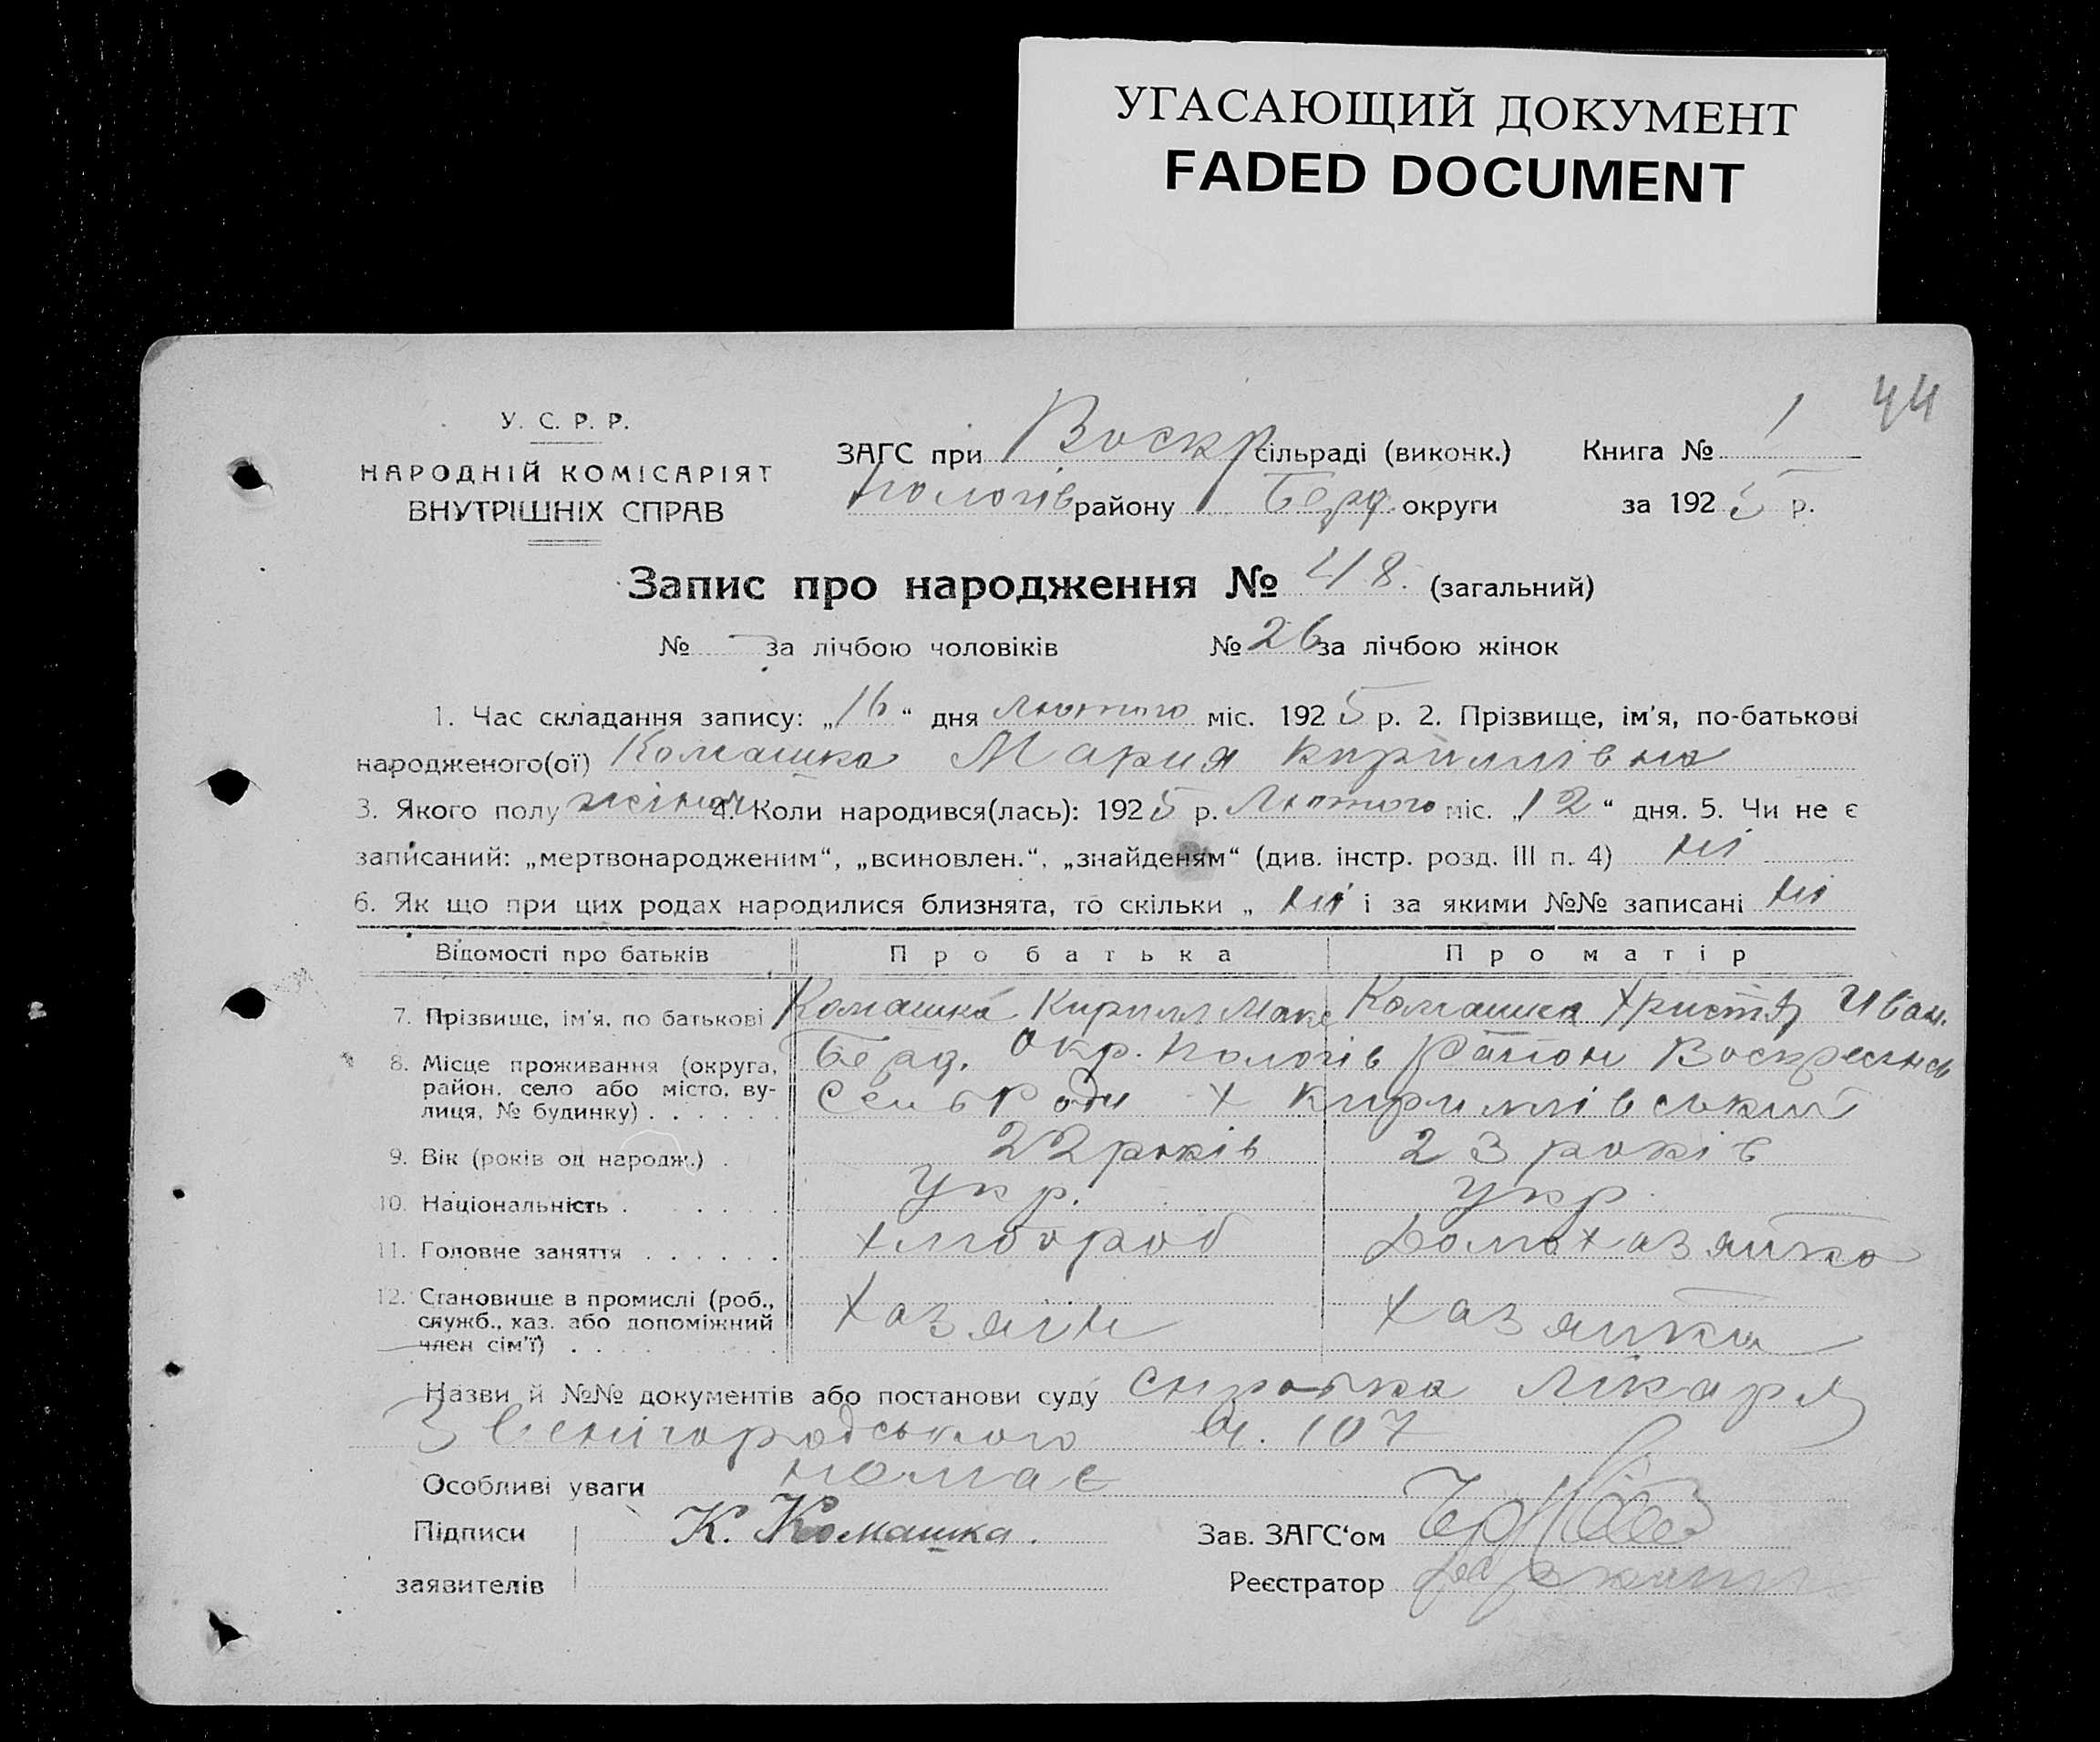 УГАСАЮЩИЙ ДОКУМЕНТ
FADED DOCUMENT
44
У. С. Р. Р.
НАРОДНІЙ КОМІСАРІЯТ
ВНУТРІШНІХ СПРАВ
ЗАГС при Воскр сільраді (виконк.) Книга № 1
Пологів району Берд. округи за 1925 р.
Запис про народження № 48. (загальний)
№ — за лічбою чоловіків № 26 за лічбою жінок
1. Час складання запису: „16“ дня Лютого міс. 1925 р. 2. Прізвище, ім'я, по-батькові
народженого(ої) Комашка Мария Кириллівна
3. Якого полу жіноч 4. Коли народився(лась): 1925 р. Лютого міс. „12“ дня. 5. Чи не є
записаний: „мертвонародженим“, „всиновлен.“, „знайденям“ (див. інстр. розд. III п. 4) ні
6. Як що при цих родах народилися близнята, то скільки „ ні і за якими №№ записані ні
Відомості про батьків Про батька Про матір
7. Прізвище, ім'я, по батькові Комашка Кирилл Макс Комашка Христя Иван.
8. Місце проживання (округа, Берд. Окр. Пологів Район Воскресенсь
район, село або місто, ву-
лиця, № будинку) Х Кириллівський
9. Вік (років од народж.) 22 років 23 років
10. Національність Укр. Укр.
11. Головне заняття Хлібороб Домохазяйка
12. Становище в промислі (роб., Хазяїн Хазяйка
служб., хаз. або допоміжний
член сім'ї)
Назви й №№ документів або постанови суду справка лікаря
Звенігородського ч. 107
Особливі уваги немає
Підписи К. Комашка. Зав. ЗАГС'ом
заявителів Реєстратор